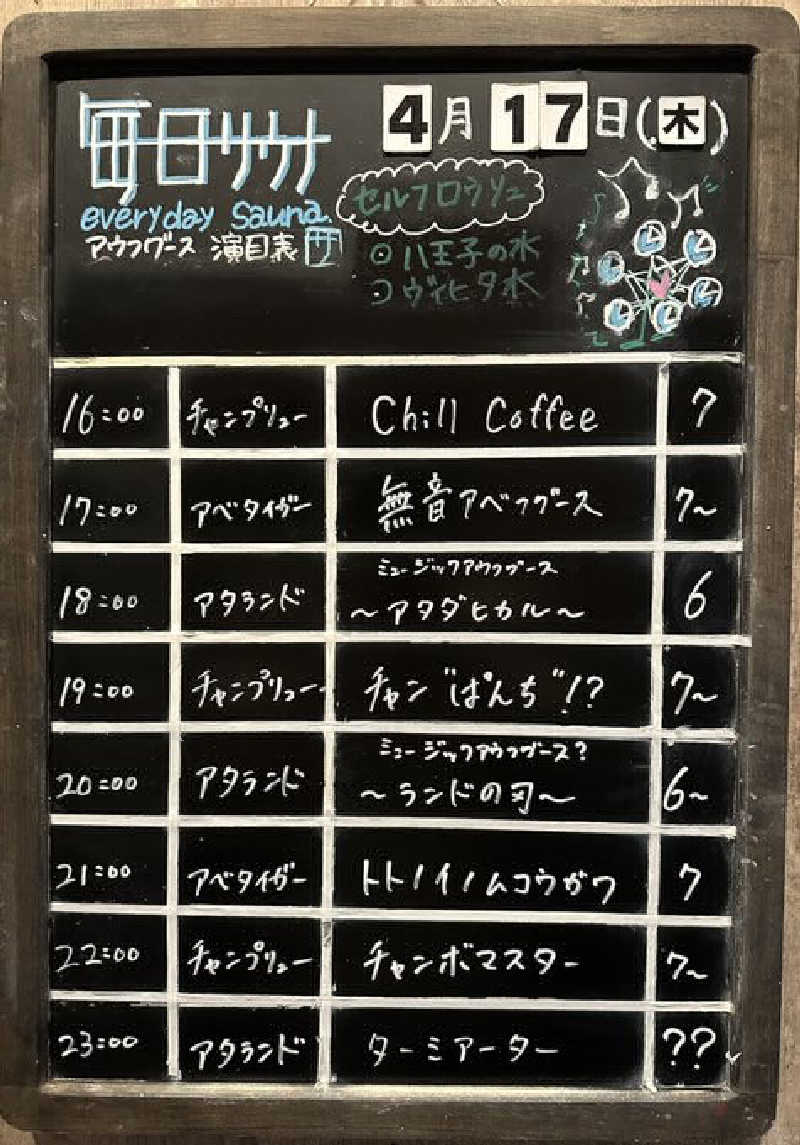 毎日サウナ
4月17日(木)
everyday Sauna.
アウフグース 演目表 サ
セルフロウリュ
◎八王子の水
ヴィヒタ水
16:00 チャンプリュー Chill Coffee 7
17:00 アベタイガー 無音アベフグース 7~
18:00 アタランド ミュージックアウフグース 6
~アタダヒカル~
19:00 チャンプリュー チャン"ぱんち"!? 7~
20:00 アタランド ミュージックアウフグース? 6~
~ランドの刃~
21:00 アベタイガー トトノイノムコウガワ 7
22:00 チャンプリュー チャンボマスター 7~
23:00 アタランド ターミアーター ??